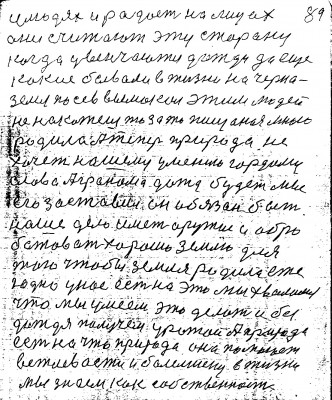 и людях и радость на лицах 89
они считают эту старану
когда увенчают дождь да еще
какие бывали в жизни на черна-
земе посев вымокли этим людей
не накотеш
родила А тепер природа не
хочет нашему умению гордому
слова Агранома дождь будет мы
его заставим он обязан быт
наше дело имет оружие и обро
батоват хорошо землю для
того чтобы земля родила еже
годно у нас ест на это мы хвалимся
что мы умеем это делат и без
дождя получем урожай А природа
ест на что природа она помогает
в жизни
мы знаем как собственност